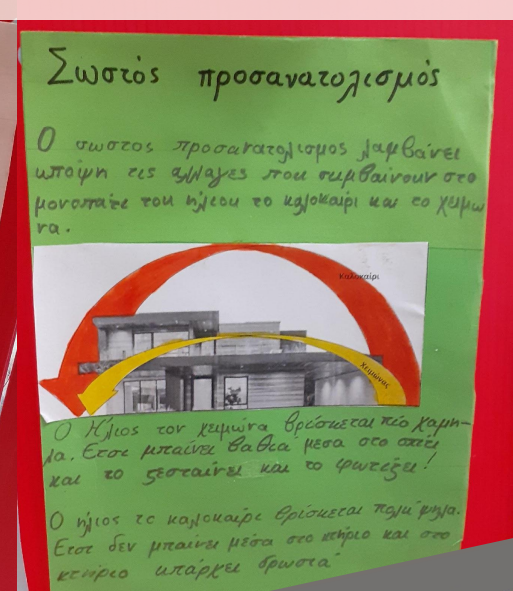 Σωστός προσανατολισμός
Ο σωστος προσανατολισμος λαμβάνει
υποψη τις αλλαγες που συμβαίνουν στο
μονοπάτι του ήλιου το καλοκαίρι και το χειμω
να.
Καλοκαίρι
Χειμώνας
Ο Ήλιος τον χειμώνα βρίσκεται πιο χαμη-
λα. Ετσι μπαίνει βαθιά μεσα στο σπίτι
και το ζεσταίνει και το φωτίζει!
Ο ήλιος το καλοκαίρι βρίσκεται πολύ ψηλα.
Ετσι δεν μπαίνει μέσα στο κτήριο και στο
κτηριο υπάρχει δρωσιά